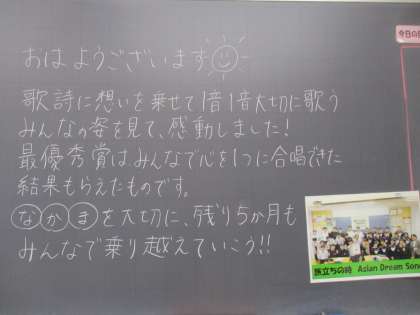 おはようございます
歌詩に想いを乗せて1音1音大切に歌う
みんなの姿を見て、感動しました!
最優秀賞はみんなで心を1つに合唱できた
結果もらえたものです。
なかまを大切に、残り5か月も
みんなで乗り越えていこう!!
今日の
旅立ちの時 Asian Dream Song